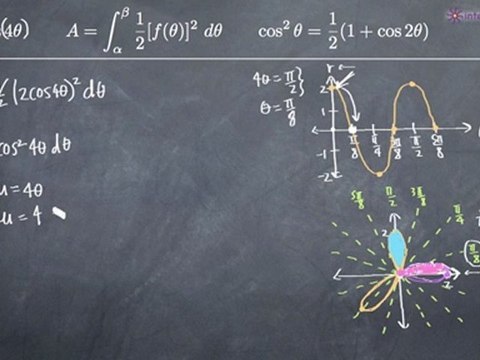 (4θ) A = ∫_α^β 1/2 [f(θ)]² dθ cos² θ = 1/2 (1 + cos 2θ)
(2cos4θ)² dθ
cos² 4θ dθ
u = 4θ
u = 4
4θ = π/2
θ = π/8
r
2
1
-1
-2
π/8 π/4 3π/8 π/2 5π/8
5π/8 π/2 3π/8
π/4
π/8
2
2